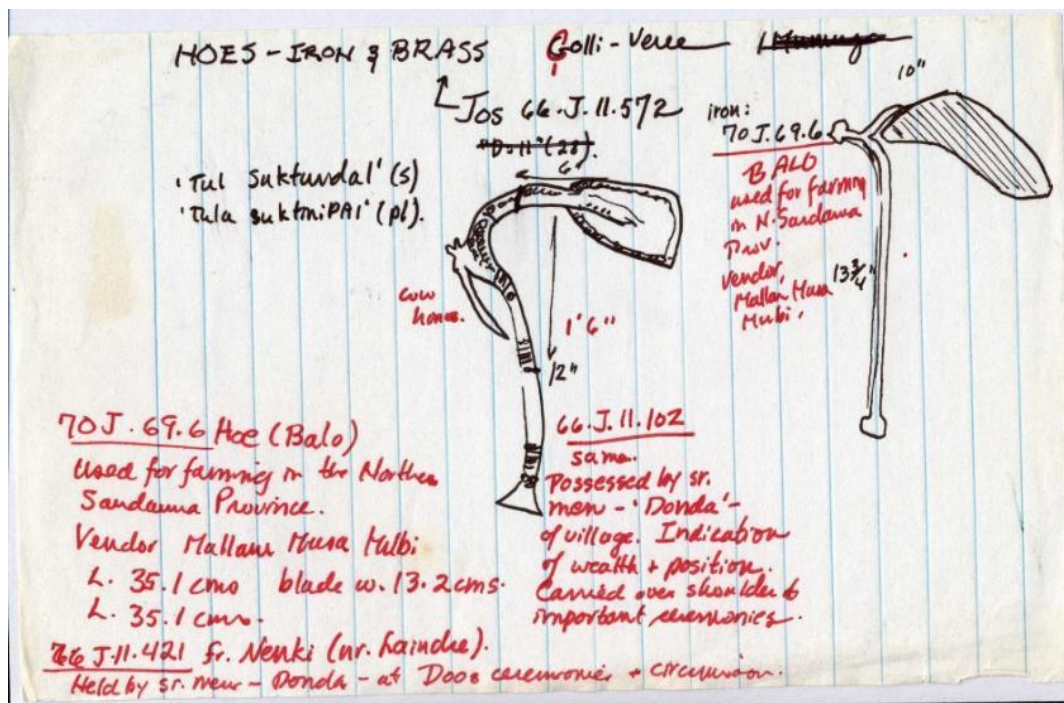 HOES - IRON & BRASS Golli - Verre
Jos 66.J.11.572
'Tul Sukturdal' (s)
'Tula suktniPAI' (pl).
6"
cow
horns.
1'6"
12"
10"
iron:
70J.69.6
BALO
used for farming
in N. Sardauna
Prov.
Vendor,
Mallam Musa
Mubi.
13 3/4"
70J.69.6 Hoe (Balo)
used for farming in the Northern
Sardauna Province.
Vendor Mallam Musa Mubi
L. 35.1 cms blade w. 13.2 cms.
L. 35.1 cms.
66.J.11.102
same.
Possessed by sr.
men - 'Donda' -
of village. Indication
of wealth + position.
Carried over shoulder @
important ceremonies.
66 J.11.421 fr. Nenki (nr.
Held by sr. men - Donda - at Doos ceremonies + circumcision.